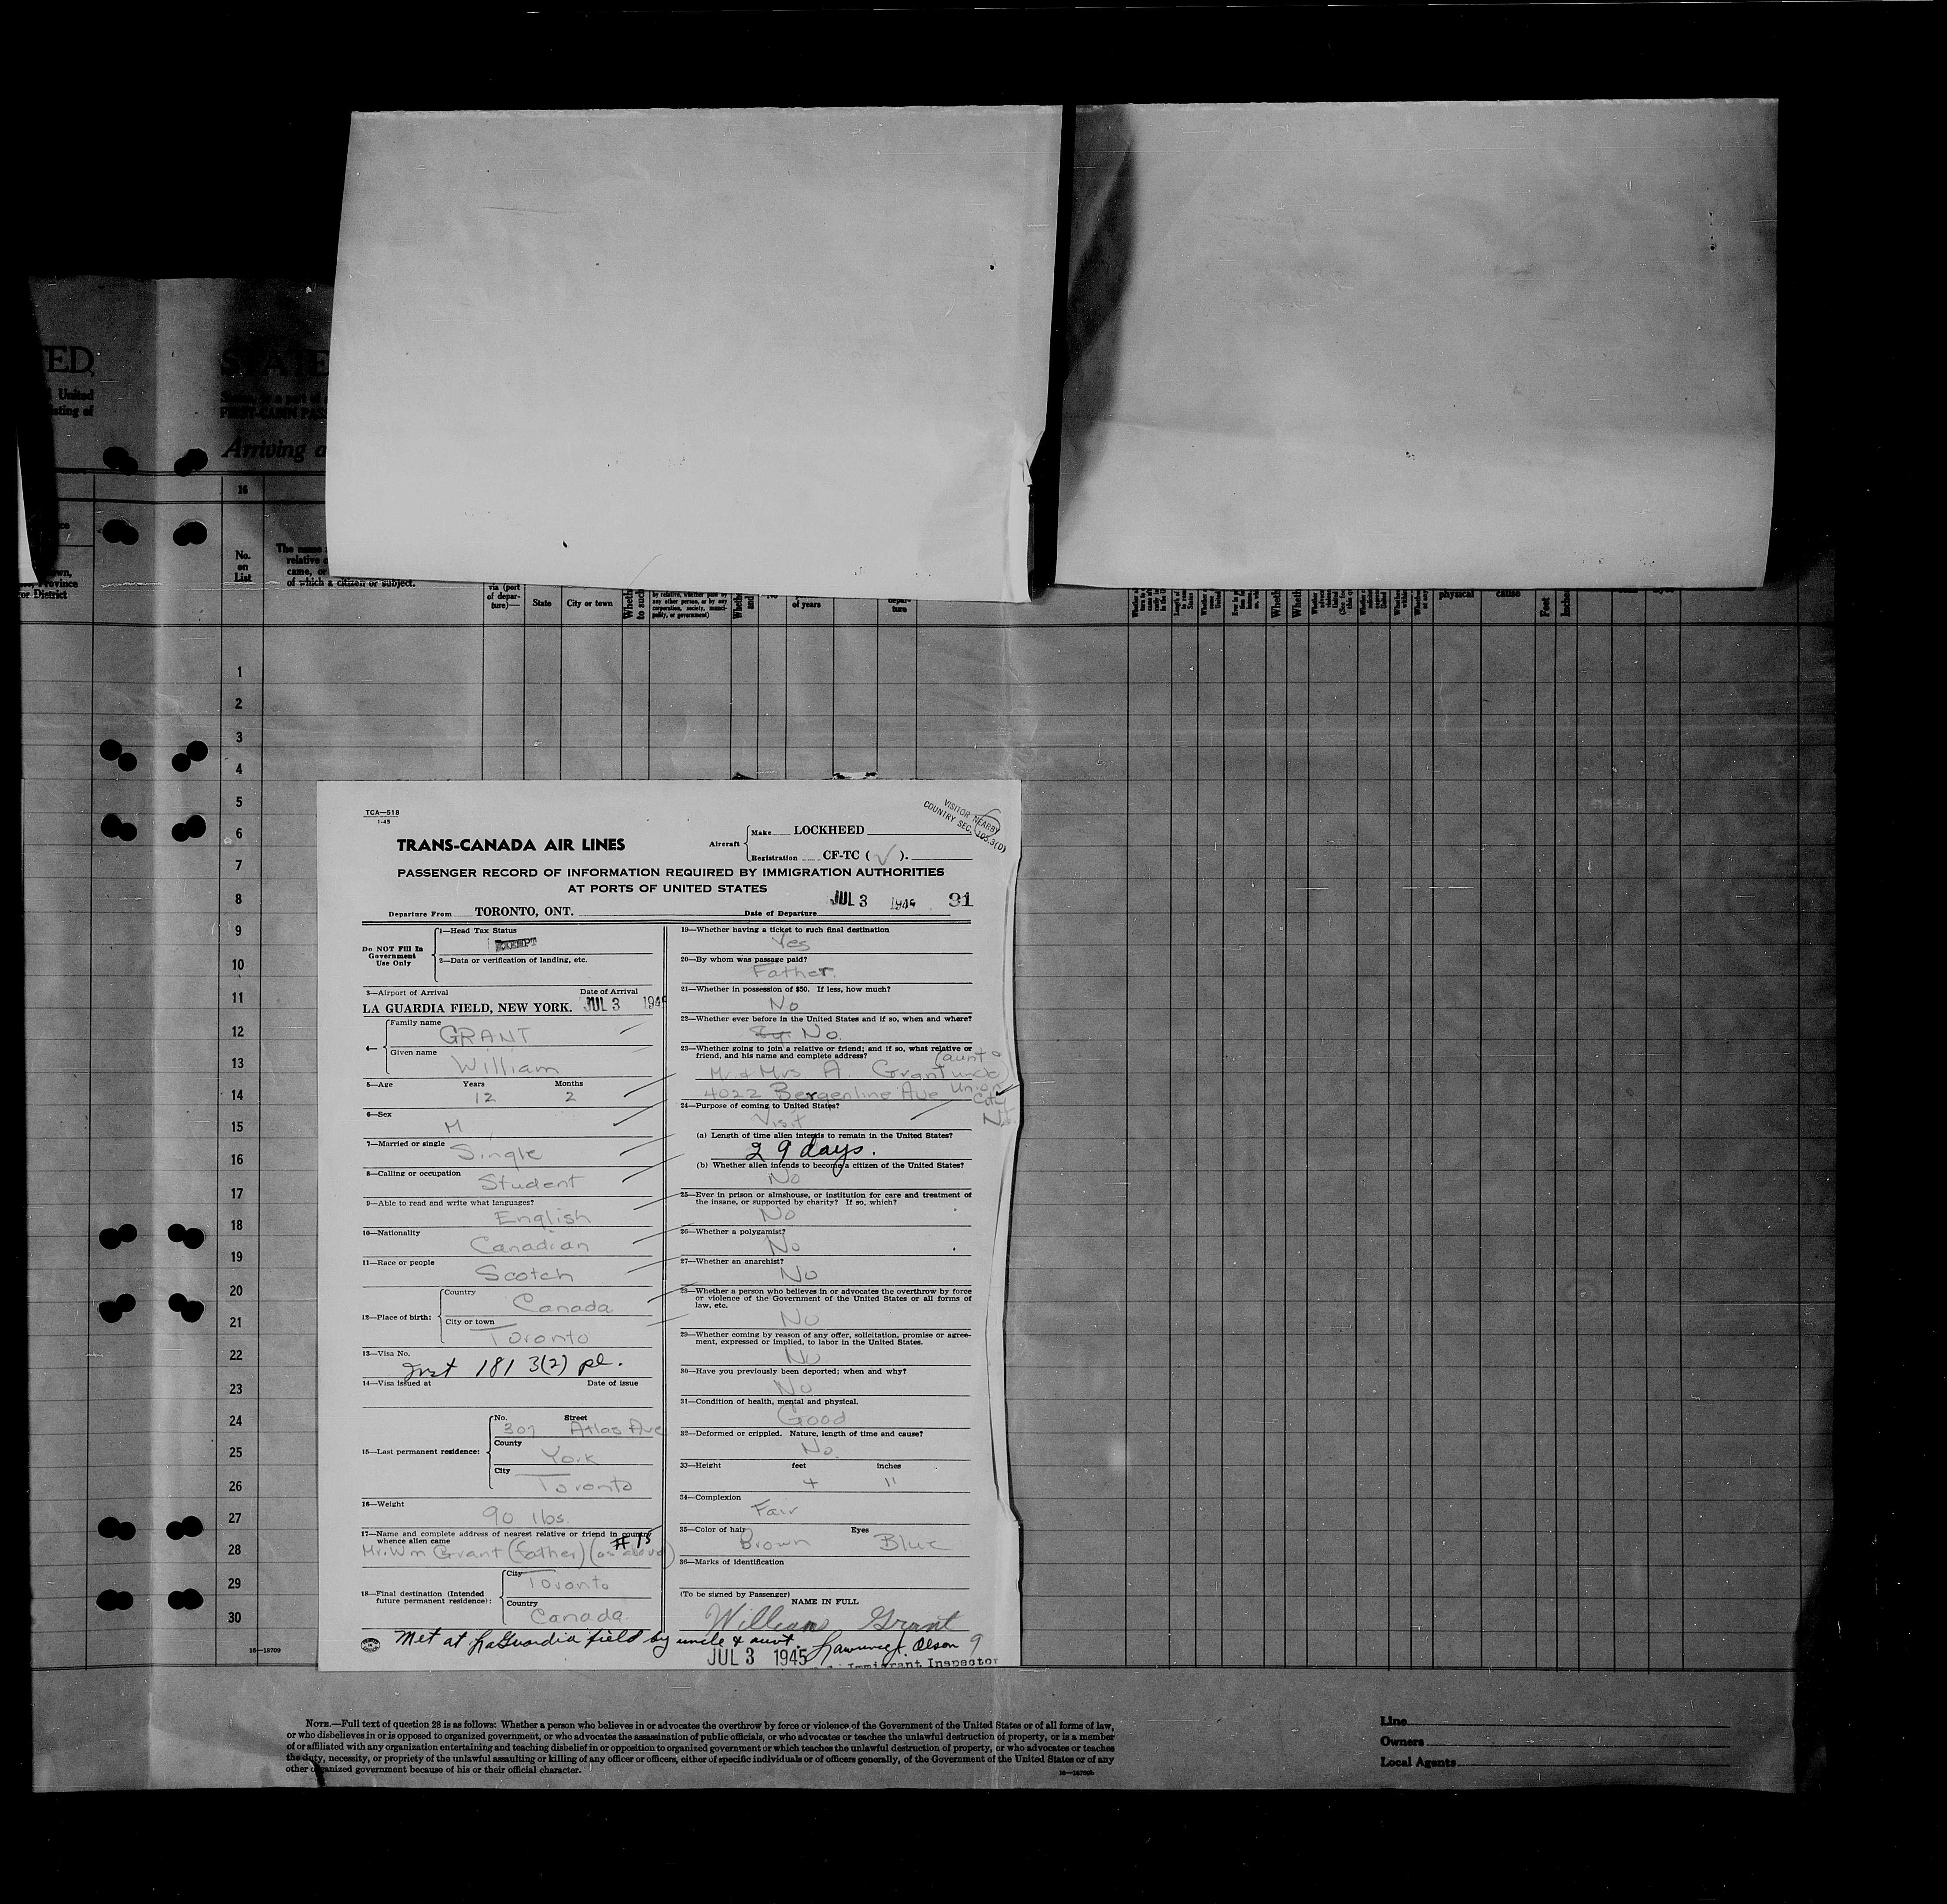 TED,
STATE
l United
isting of
States, or a part of
FIRST-CABIN PASS
Arriving a
16
No.
on
List
The name
relative o
came, or
of which a citizen or subject.
own,
Province
or District
via (port
of depar-
ture)—
State
City or town
by relative, whether paid by
any other person, or by any
corporation, society, munici-
pality, or government)
of years
depar-
ture
physical
cause
Feet
Inches
1
2
3
4
5
6
7
8
9
10
11
12
13
14
15
16
17
18
19
20
21
22
23
24
25
26
27
28
29
30
16—18709
TCA—518
1-45
VISITOR NEARBY
COUNTRY SEC. 105.3(D)
TRANS-CANADA AIR LINES
Aircraft
Make LOCKHEED
Registration CF-TC ( V ).
PASSENGER RECORD OF INFORMATION REQUIRED BY IMMIGRATION AUTHORITIES
AT PORTS OF UNITED STATES
Departure From TORONTO, ONT. Date of Departure JUL 3 194 91
Do NOT Fill In
Government
Use Only
1—Head Tax Status
EXEMPT
2—Data or verification of landing, etc.
3—Airport of Arrival Date of Arrival
LA GUARDIA FIELD, NEW YORK. JUL 3 194
4—
Family name
GRANT
Given name
William
5—Age Years Months
12 2
6—Sex
M
7—Married or single
Single
8—Calling or occupation
Student
9—Able to read and write what languages?
English
10—Nationality
Canadian
11—Race or people
Scotch
12—Place of birth:
Country
Canada
City or town
Toronto
13—Visa No.
181 3(2) pl.
14—Visa issued at Date of issue
15—Last permanent residence:
No. Street
307 Atlas Ave
County
York
City
Toronto
16—Weight
90 lbs.
17—Name and complete address of nearest relative or friend in country
whence alien came
#15
Mr. Wm Grant (father) (as above)
18—Final destination (Intended
future permanent residence):
City
Toronto
Country
Canada
19—Whether having a ticket to such final destination
Yes
20—By whom was passage paid?
Father.
21—Whether in possession of $50. If less, how much?
No
22—Whether ever before in the United States and if so, when and where?
No.
23—Whether going to join a relative or friend; and if so, what relative or
friend, and his name and complete address?
(aunt &
Mr. & Mrs A. Grant uncle)
4022 Bergenline Ave Union
City
N.J.
24—Purpose of coming to United States?
Visit
(a) Length of time alien intends to remain in the United States?
29 days.
(b) Whether alien intends to become a citizen of the United States?
No
25—Ever in prison or almshouse, or institution for care and treatment of
the insane, or supported by charity? If so, which?
No
26—Whether a polygamist?
No
27—Whether an anarchist?
No
28—Whether a person who believes in or advocates the overthrow by force
or violence of the Government of the United States or all forms of
law, etc.
No
29—Whether coming by reason of any offer, solicitation, promise or agree-
ment, expressed or implied, to labor in the United States.
No
30—Have you previously been deported; when and why?
No
31—Condition of health, mental and physical.
Good
32—Deformed or crippled. Nature, length of time and cause?
No.
33—Height feet inches
4 11
34—Complexion
Fair
35—Color of hair Eyes
Brown Blue
36—Marks of identification
(To be signed by Passenger)
NAME IN FULL
William Grant
Met at LaGuardia field by uncle & aunt. Lawrence J. Olson 9
JUL 3 1945
Immigrant Inspector
NOTE.—Full text of question 28 is as follows: Whether a person who believes in or advocates the overthrow by force or violence of the Government of the United States or of all forms of law,
or who disbelieves in or is opposed to organized government, or who advocates the assassination of public officials, or who advocates or teaches the unlawful destruction of property, or is a member
of or affiliated with any organization entertaining and teaching disbelief in or opposition to organized government or which teaches the unlawful destruction of property, or who advocates or teaches
the duty, necessity, or propriety of the unlawful assaulting or killing of any officer or officers, either of specific individuals or of officers generally, of the Government of the United States or of any
other organized government because of his or their official character.
16—18709b
Line
Owners
Local Agents